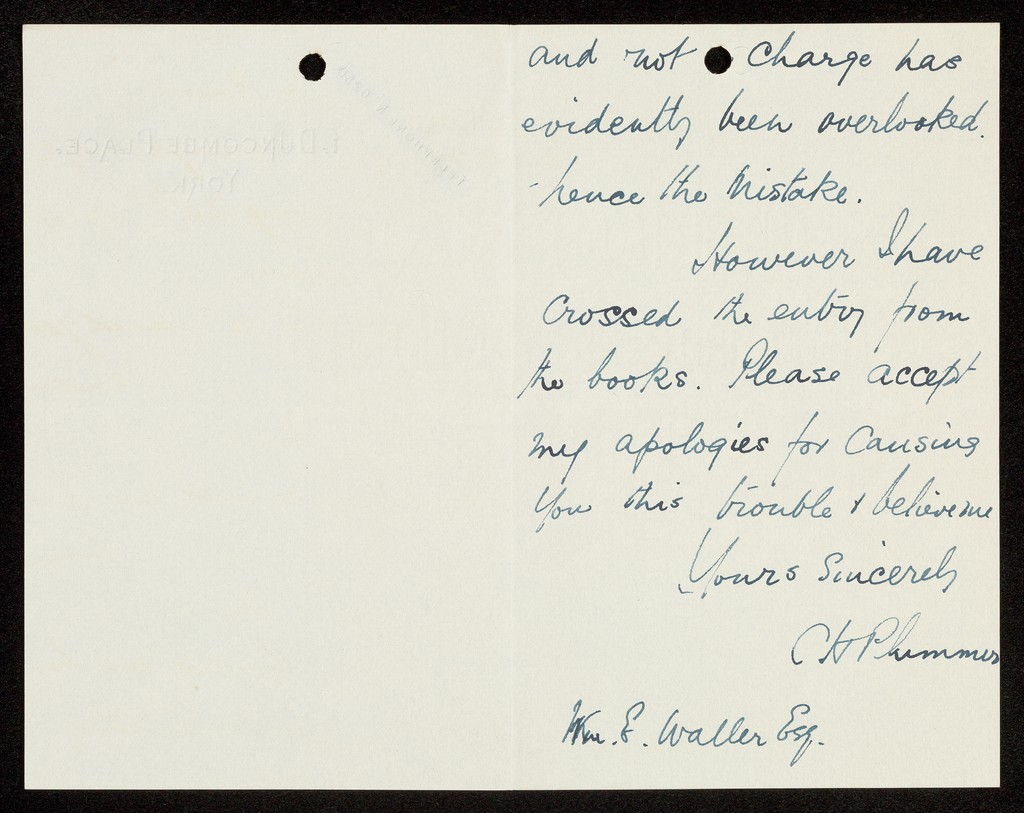 1. DUNCOMBE PLACE,
YORK.
and not charge has
evidently been overlooked.
hence the Mistake.
However I have
Crossed the entry from
the books. Please accept
my apologies for Causing
you this trouble & believe me
Yours Sincerely
C H Plummer
Wm. E. Waller Esq.